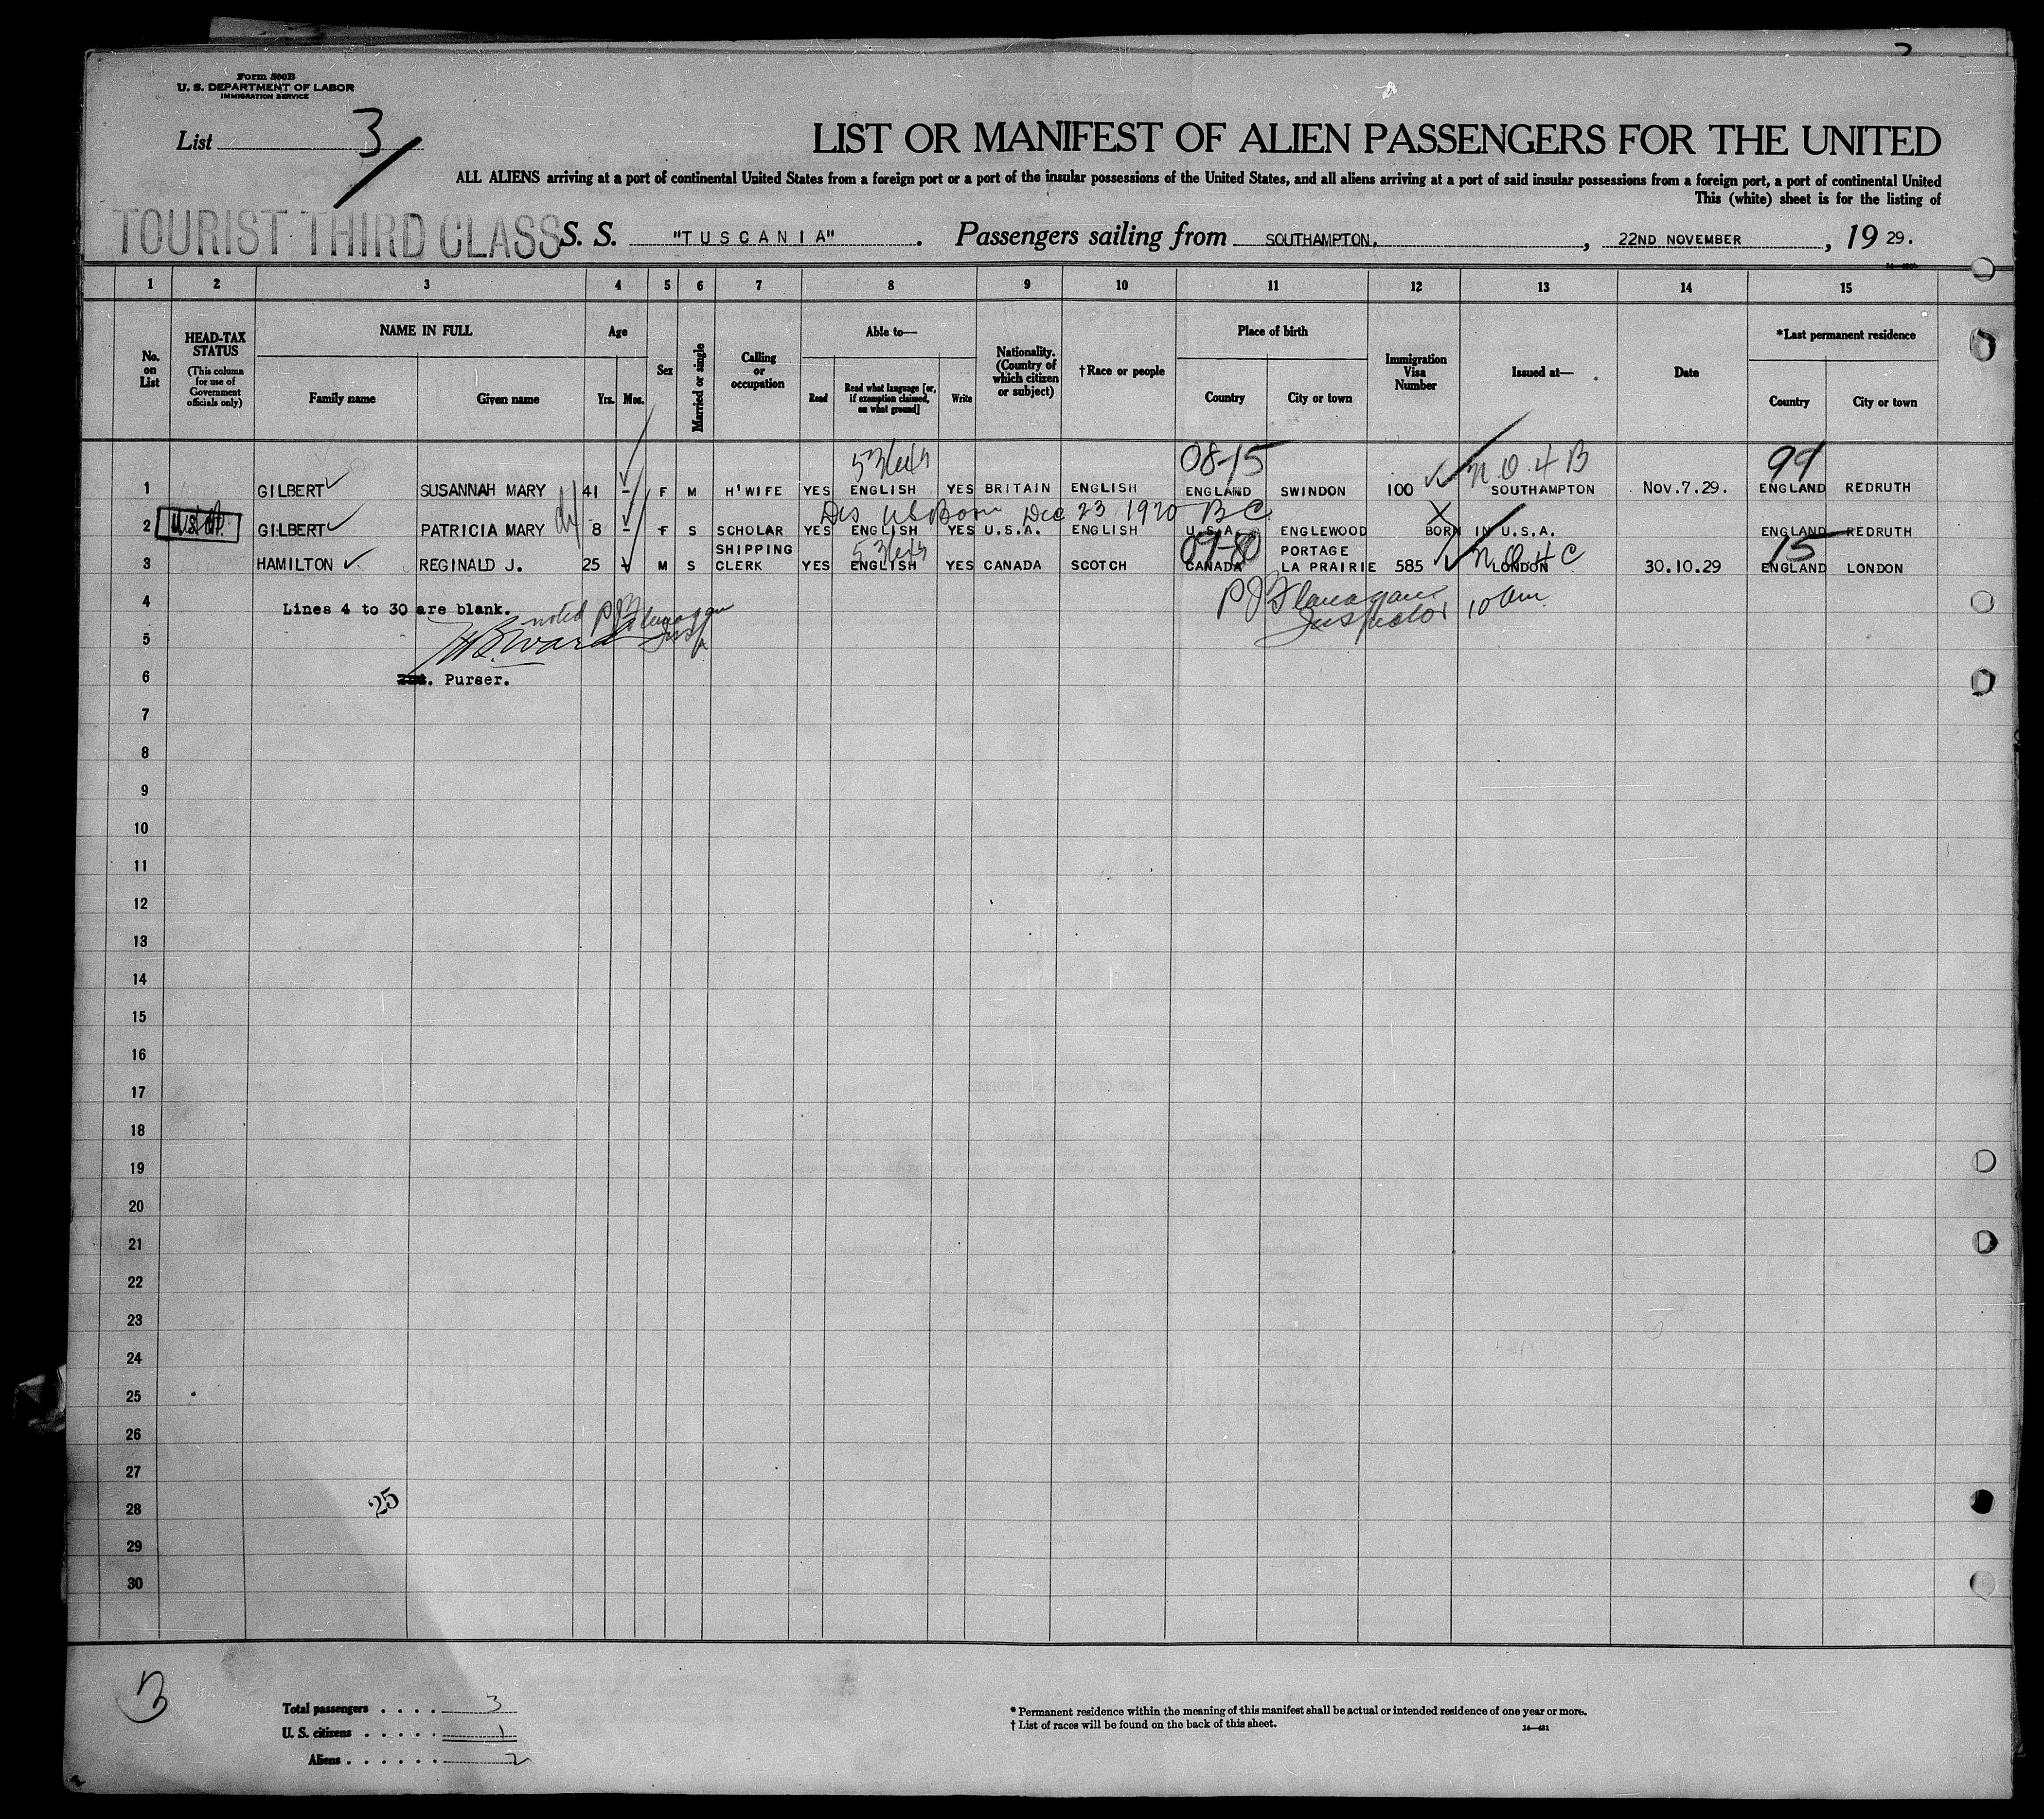 Form 500B
U. S. DEPARTMENT OF LABOR
IMMIGRATION SERVICE
List 3
LIST OR MANIFEST OF ALIEN PASSENGERS FOR THE UNITED
ALL ALIENS arriving at a port of continental United States from a foreign port or a port of the insular possessions of the United States, and all aliens arriving at a port of said insular possessions from a foreign port, a port of continental United
This (white) sheet is for the listing of
TOURIST THIRD CLASS S. S. "TUSCANIA" . Passengers sailing from SOUTHAMPTON. , 22ND NOVEMBER , 19 29.
1 2 3 4 5 6 7 8 9 10 11 12 13 14 15
No. on List
HEAD-TAX STATUS (This column for use of Government officials only)
NAME IN FULL
Family name Given name
Age
Yrs. Mos.
Sex
Married or single
Calling or occupation
Able to—
Read Read what language [or, if exemption claimed, on what ground] Write
Nationality. (Country of which citizen or subject)
†Race or people
Place of birth
Country City or town
Immigration Visa Number
Issued at—
Date
*Last permanent residence
Country City or town
08-15 N.O.4 B 99
1 GILBERT SUSANNAH MARY 41 - F M H'WIFE YES ENGLISH YES BRITAIN ENGLISH ENGLAND SWINDON 100 SOUTHAMPTON Nov.7.29. ENGLAND REDRUTH
US Born Dec 23 1920 BC X
2 GILBERT PATRICIA MARY 8 - F S SCHOLAR YES ENGLISH YES U.S.A. ENGLISH U.S.A. ENGLEWOOD BORN IN U.S.A. ENGLAND REDRUTH
15
3 HAMILTON REGINALD J. 25 M S SHIPPING CLERK YES ENGLISH YES CANADA SCOTCH CANADA PORTAGE LA PRAIRIE 585 LONDON 30.10.29 ENGLAND LONDON
4 Lines 4 to 30 are blank.
noted PJ Flanagan Insp
PJ Flanagan Inspector 10 am
5 H B Ward
6 Purser.
7
8
9
10
11
12
13
14
15
16
17
18
19
20
21
22
23
24
25
26
27
28 25
29
30
3
Total passengers . . . . 3
U. S. citizens . . . . . 1
Aliens . . . . . . 2
* Permanent residence within the meaning of this manifest shall be actual or intended residence of one year or more.
† List of races will be found on the back of this sheet. 14—421